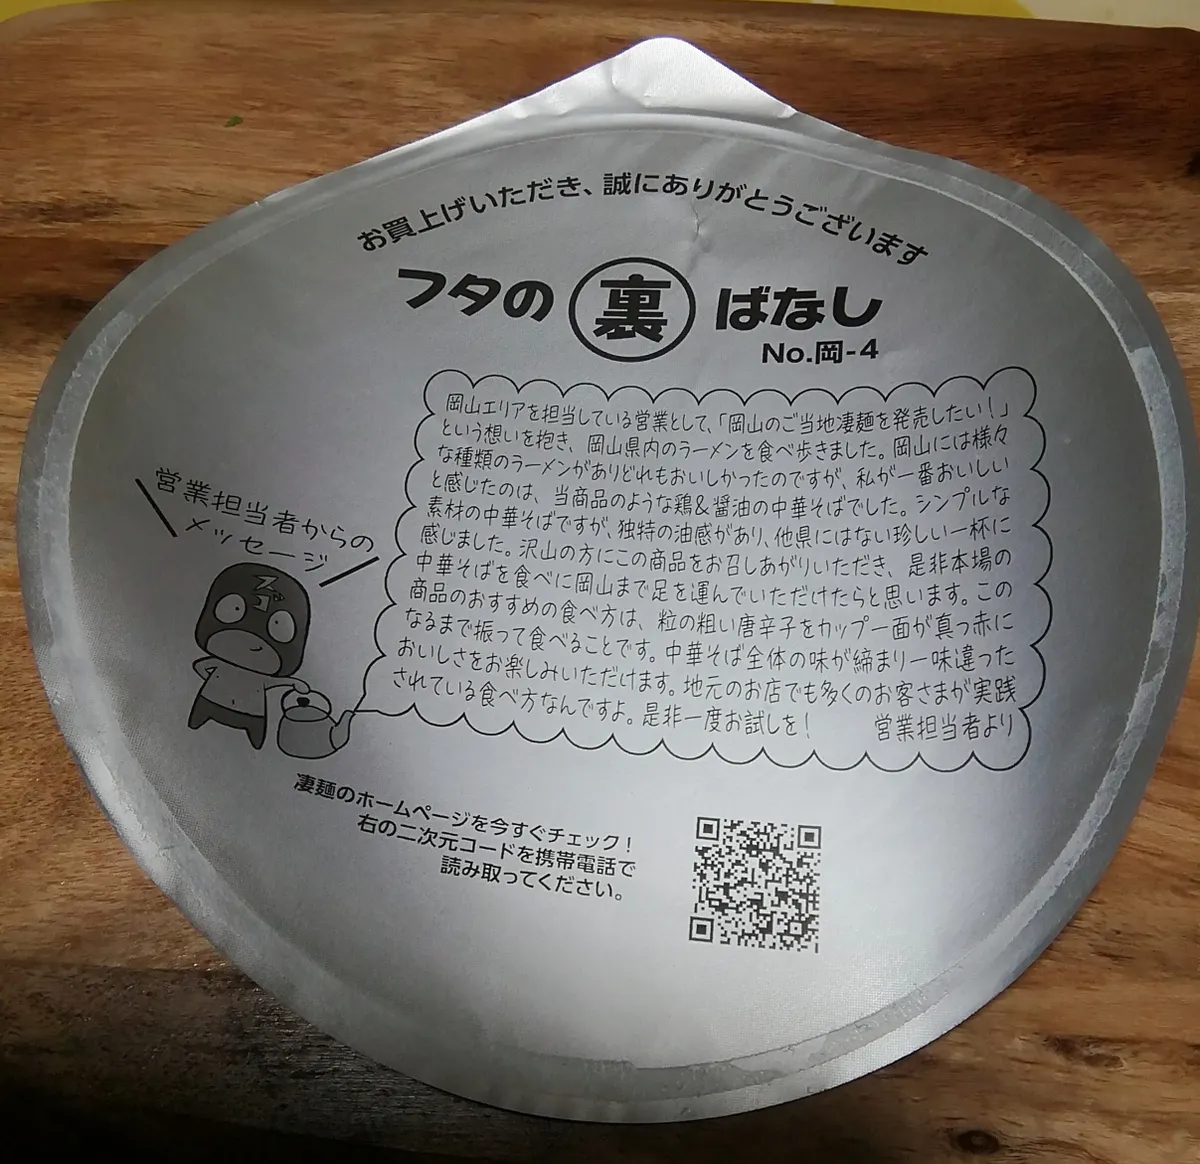 お買上げいただき、誠にありがとうございます
フタの裏ばなし
No.岡-4
営業担当者からの
メッセージ
岡山エリアを担当している営業として、「岡山のご当地凄麺を発売したい！」
という想いを抱き、岡山県内のラーメンを食べ歩きました。岡山には様々
な種類のラーメンがありどれもおいしかったのですが、私が一番おいしい
と感じたのは、当商品のような鶏&醤油の中華そばでした。シンプルな
素材の中華そばですが、独特の油感があり、他県にはない珍しい一杯に
感じました。沢山の方にこの商品をお召しあがりいただき、是非本場の
中華そばを食べに岡山まで足を運んでいただけたらと思います。この
商品のおすすめの食べ方は、粒の粗い唐辛子をカップ一面が真っ赤に
なるまで振って食べることです。中華そば全体の味が締まり一味違った
おいしさをお楽しみいただけます。地元のお店でも多くのお客さまが実践
されている食べ方なんですよ。是非一度お試しを！ 営業担当者より
凄麺のホームページを今すぐチェック！
右の二次元コードを携帯電話で
読み取ってください。